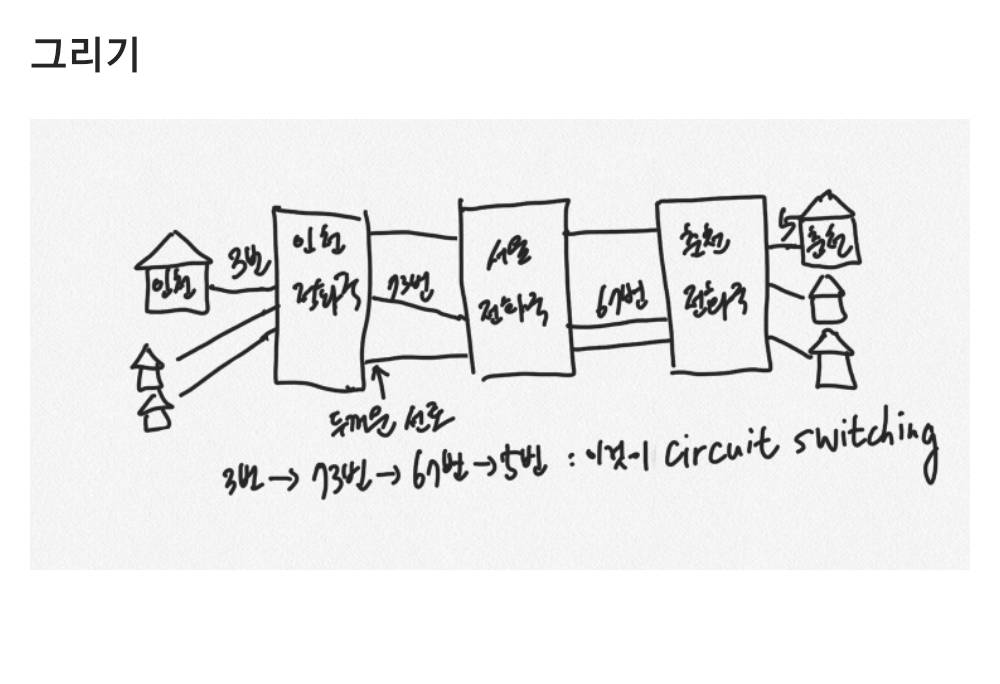 그리기
인천
3번
인천
전화국
73번
서울
전화국
67번
춘천
전화국
5
춘천
두꺼운 선로
3번 → 73번 → 67번 → 5번 : 이것이 circuit switching